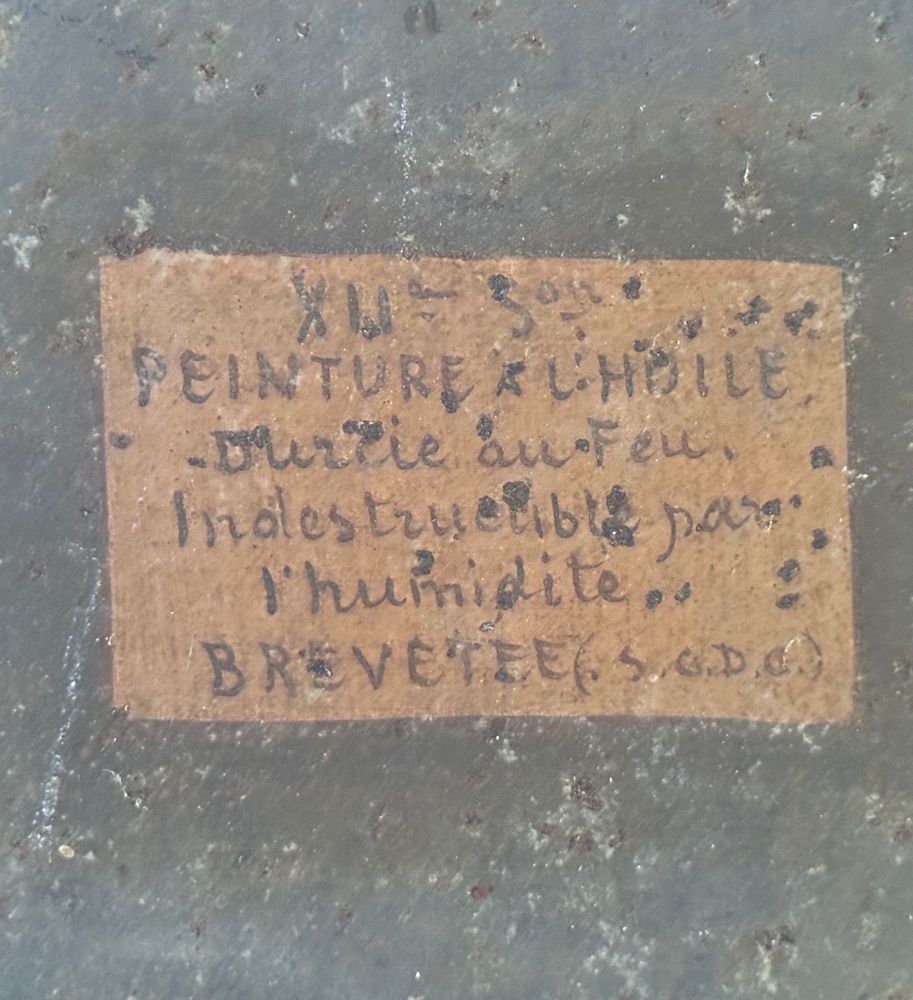 PEINTURE A L'HUILE
Durcie au Feu.
Indestructible par
l'humidite..
BREVETEE (. S.G.D.G.)